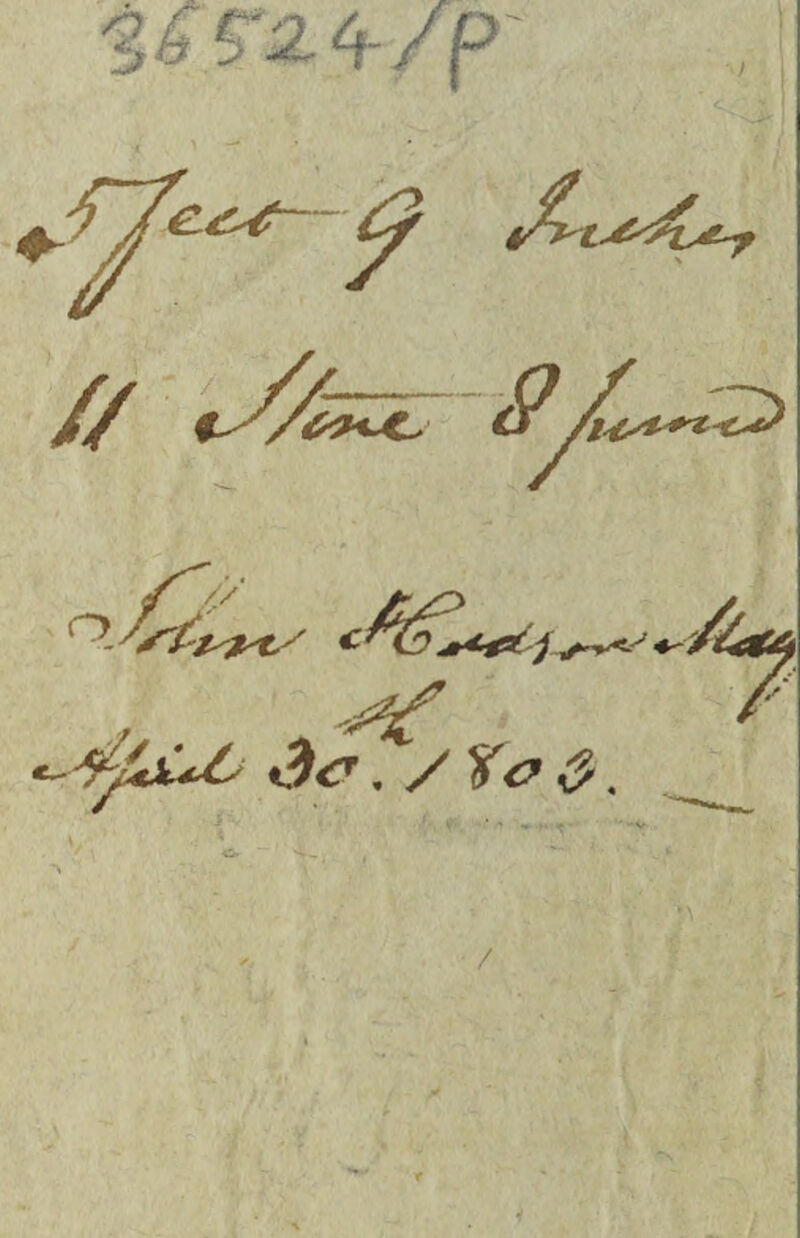 36524/P
5 feet 9 Inches
11 Stone 8 pound
John Hudson May
April 30th. 1803.